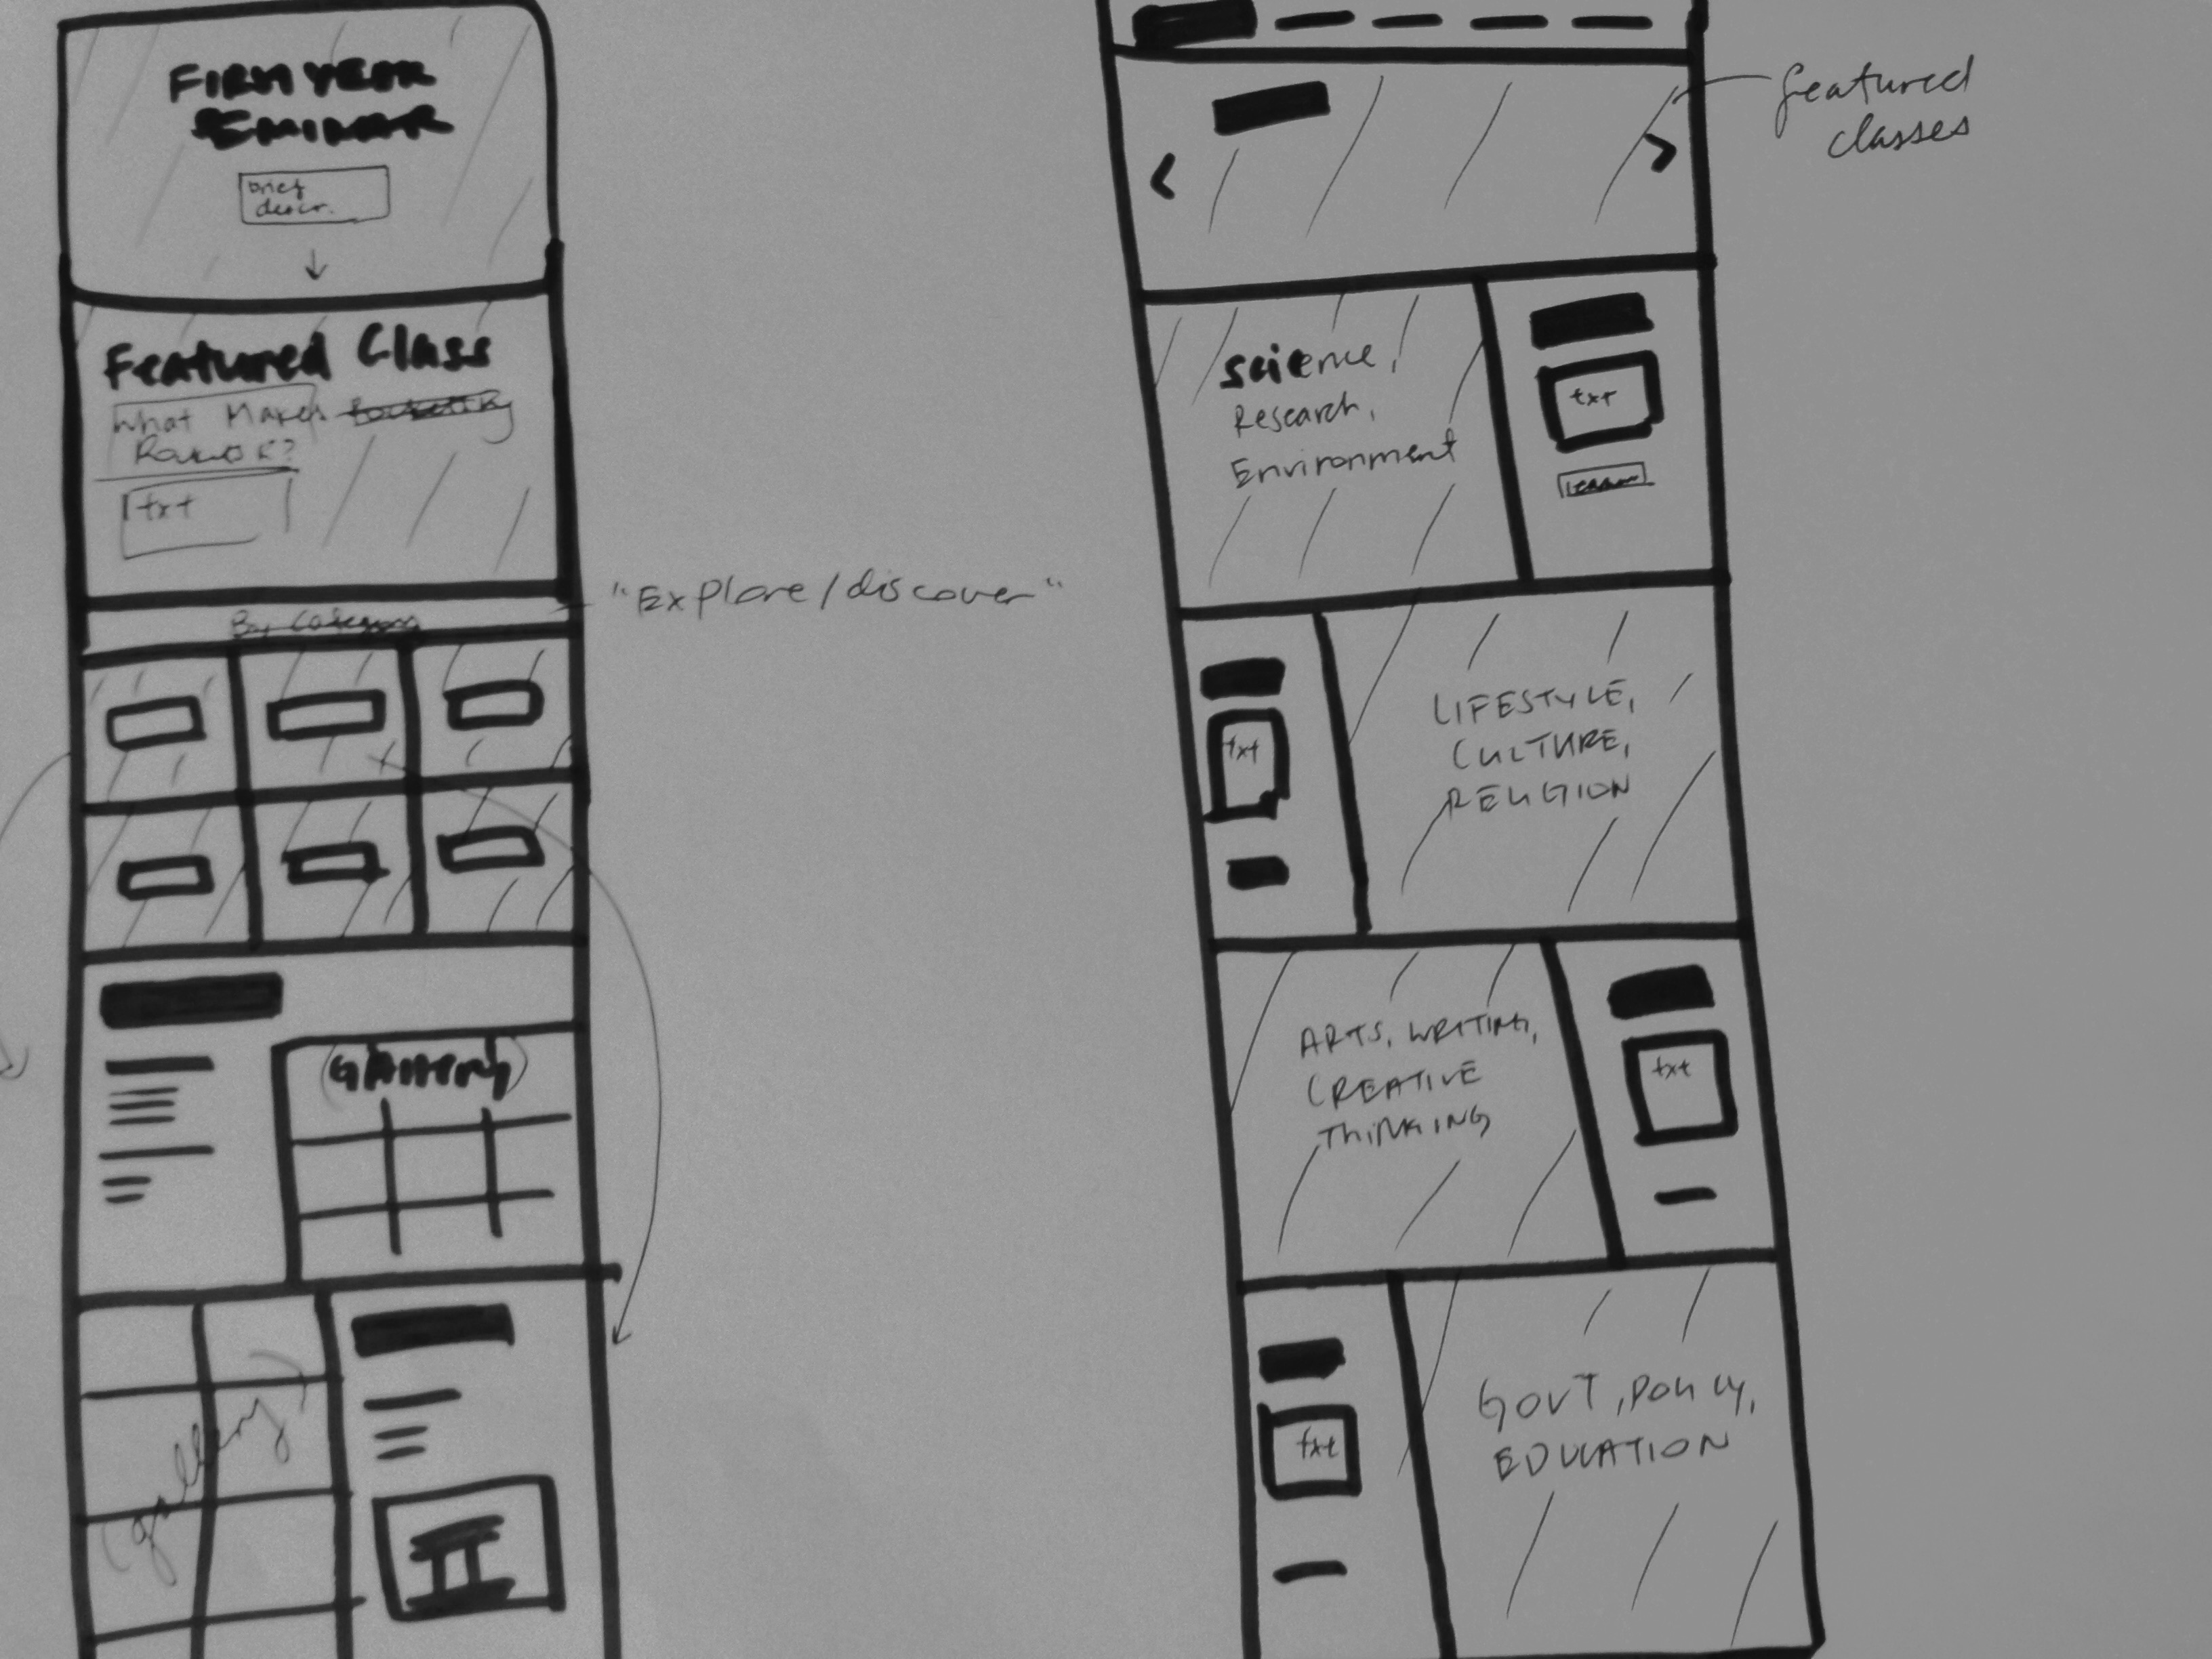 FIRST YEAR
SEMINAR
brief
descr.
Featured Class
What Makes
txt
By Category
"Explore/discover"
GALLERY
(gallery)
featured
classes
Science,
Research,
Environment
txt
LIFESTYLE,
CULTURE,
RELIGION
txt
ARTS, WRITING,
CREATIVE
THINKING
txt
GOVT, POLICY,
EDUCATION
txt